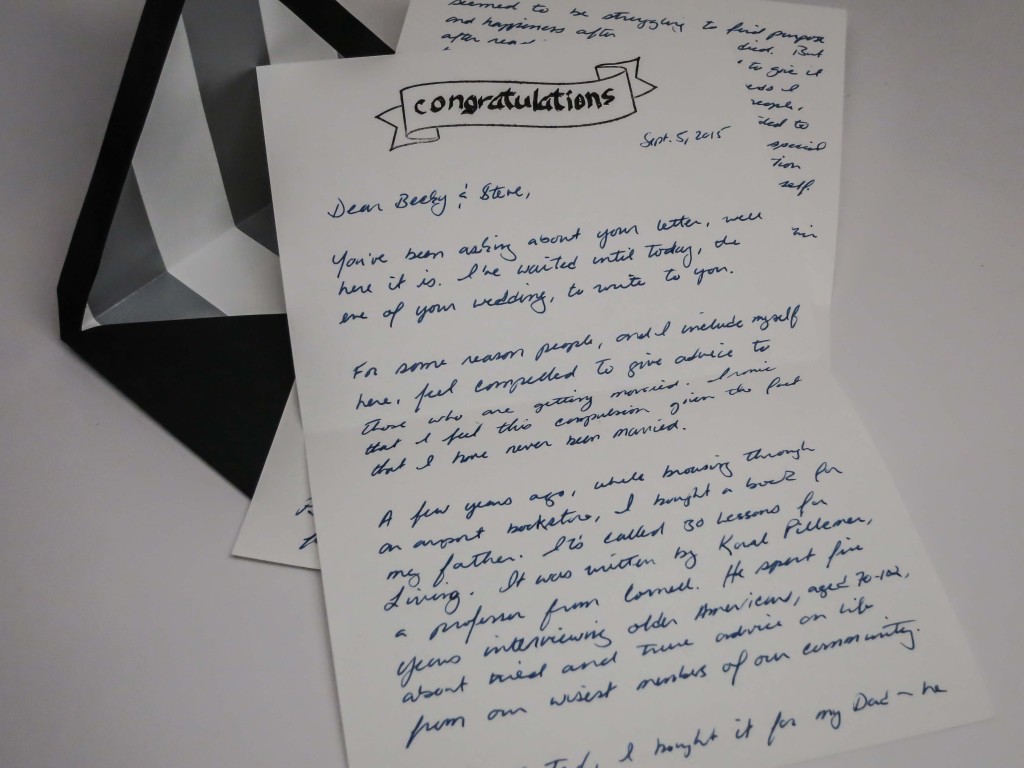 seemed to be struggling to find purpose
and happiness after
died. But
after
to give it
people,
ded to
special
tion
self.
in
congratulations
Sept. 5, 2015
Dear Becky & Steve,
You've been asking about your letter, well
here it is. I've waited until today, the
eve of your wedding, to write to you.
For some reason people, and I include myself
here, feel compelled to give advice to
those who are getting married. Ironic
that I feel this compulsion given the fact
that I have never been married.
A few years ago, while browsing through
an airport bookstore, I bought a book for
my father. It's called 30 Lessons for
Living. It was written by Karl Pillemer,
a professor from Cornell. He spent five
years interviewing older Americans, aged 70-102,
about tried and true advice on life
from our wisest members of our community.
I bought it for my Dad - he